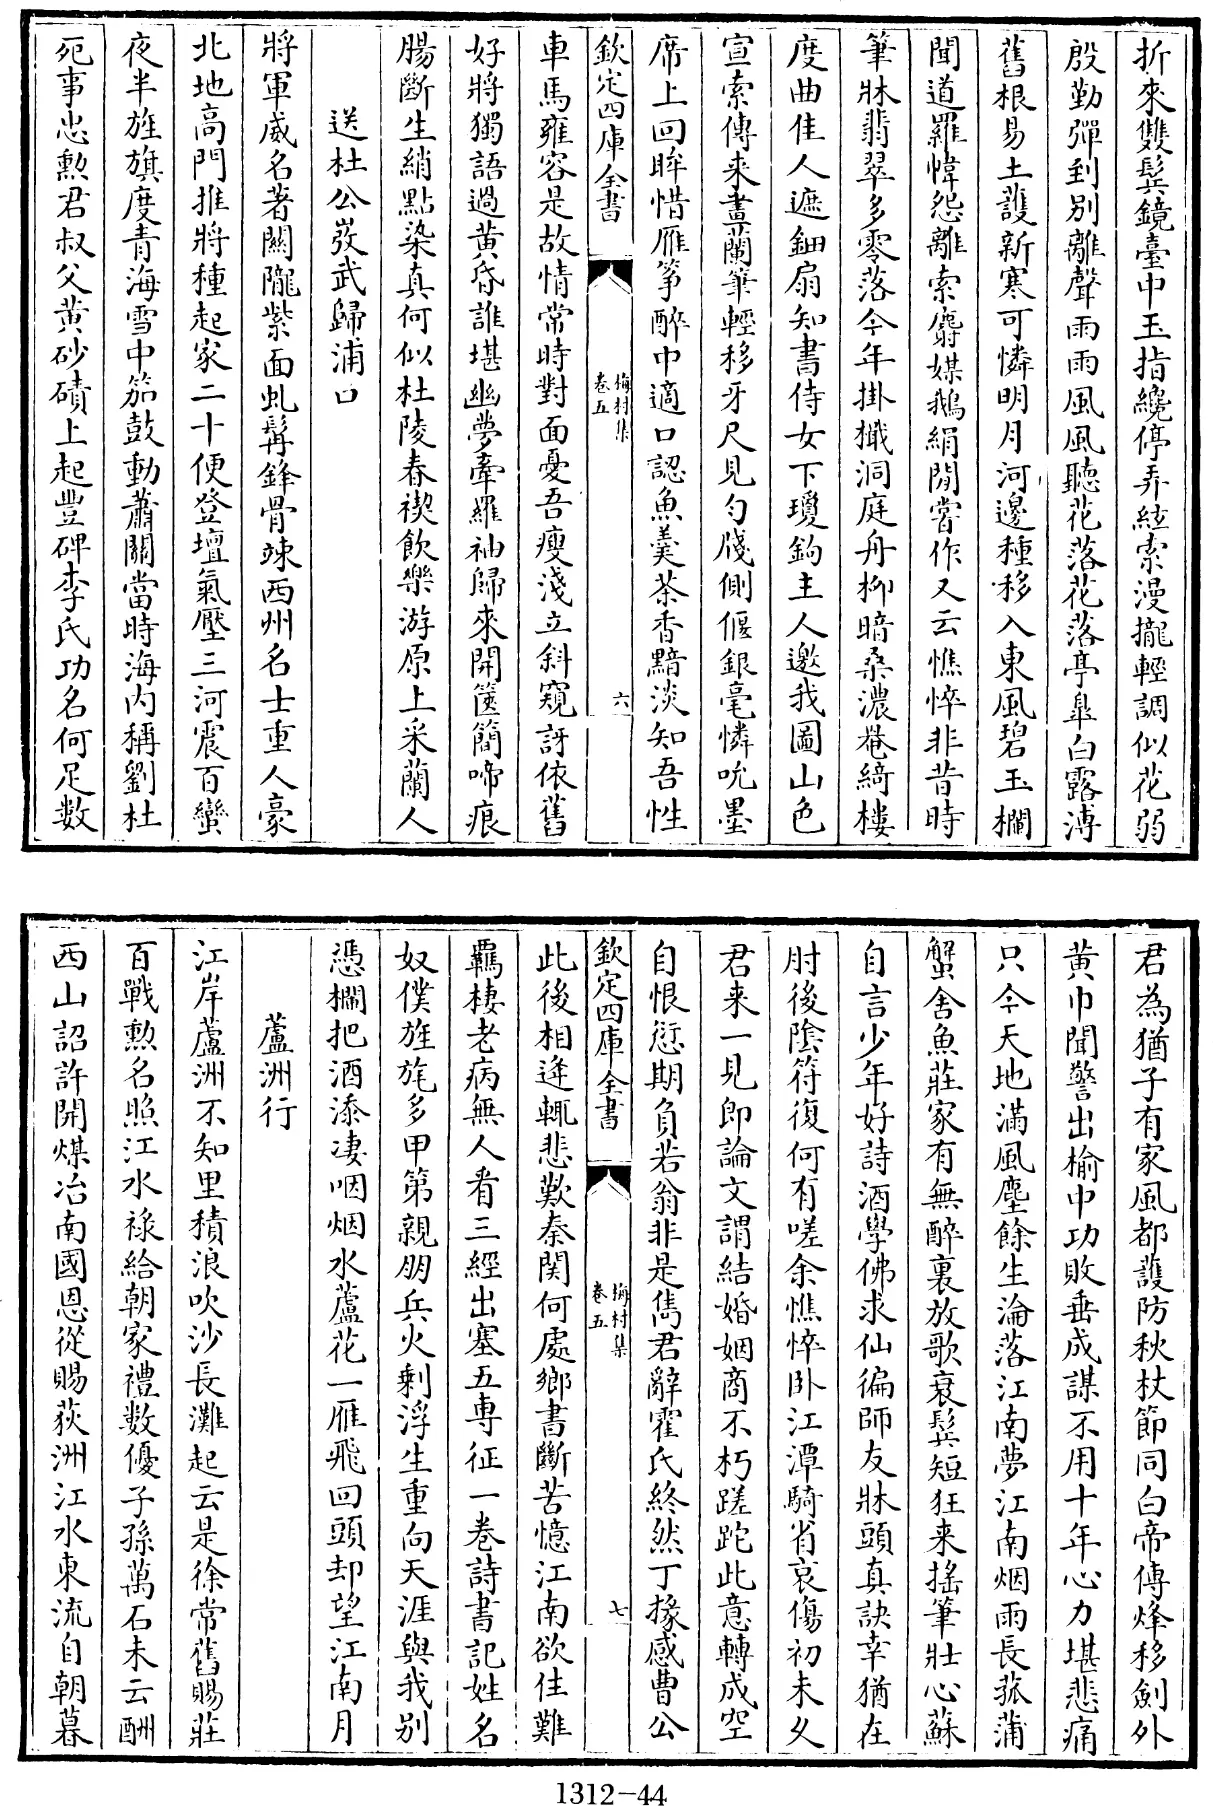 折來雙鬂鏡臺中玉指纔停弄絃索漫攏輕調似花弱
殷勤彈到别離聲雨雨風風聽花落花落亭臯白露溥
舊根易土護新寒可憐明月河邊種移入東風碧玉欄
聞道羅幃怨離索麝媒鵝絹閒嘗作又云憔悴非昔時
筆牀翡翠多零落今年掛檝洞庭舟柳暗桑濃罨綺樓
度曲佳人遮鈿扇知書侍女下瓊鈎主人邀我圖山色
宣索傳來畫蘭筆輕移牙尺見勻牋側偃銀毫憐吮墨
席上回眸惜雁筝醉中適口認魚羹茶香黯淡知吾性
欽定四庫全書
梅村集
卷五
六
車馬雍容是故情常時對面憂吾瘦淺立斜窺訝依舊
好將獨語過黄昏誰堪幽夢牽羅袖歸來開篋簡啼痕
腸斷生綃點染真何似杜陵春禊飲樂游原上采蘭人
送杜公弢武歸浦口
將軍威名著關隴紫面虬髯鋒骨竦西州名士重人豪
北地高門推將種起家二十便登壇氣壓三河震百蠻
夜半旌旗度青海雪中笳鼓動蕭關當時海内稱劉杜
死事忠勲君叔父黄砂磧上起豐碑李氏功名何足數
君為猶子有家風都護防秋杖節同白帝傳烽移劍外
黄巾聞警出榆中功敗垂成謀不用十年心力堪悲痛
只今天地滿風塵餘生淪落江南夢江南烟雨長菰蒲
蟹舍魚莊家有無醉裏放歌衰鬂短狂来揺筆壯心蘇
自言少年好詩酒學佛求仙徧師友牀頭真訣幸猶在
肘後陰符復何有嗟余憔悴卧江潭騎省哀傷初未久
君来一見即論文謂結婚姻商不朽蹉跎此意轉成空
自恨愆期負若翁非是雋君辭霍氏終然丁掾感曹公
欽定四庫全書
梅村集
卷五
七
此後相逢輒悲歎秦関何處鄉書斷苦憶江南欲住難
羈棲老病無人看三經出塞五専征一巻詩書記姓名
奴僕旌旄多甲第親朋兵火剩浮生重向天涯與我别
憑欄把酒添凄咽烟水蘆花一雁飛回頭却望江南月
蘆洲行
江岸蘆洲不知里積浪吹沙長灘起云是徐常舊賜莊
百戰勲名照江水祿給朝家禮數優子孫萬石未云酬
西山詔許開煤冶南國恩從賜荻洲江水東流自朝暮
1312-44